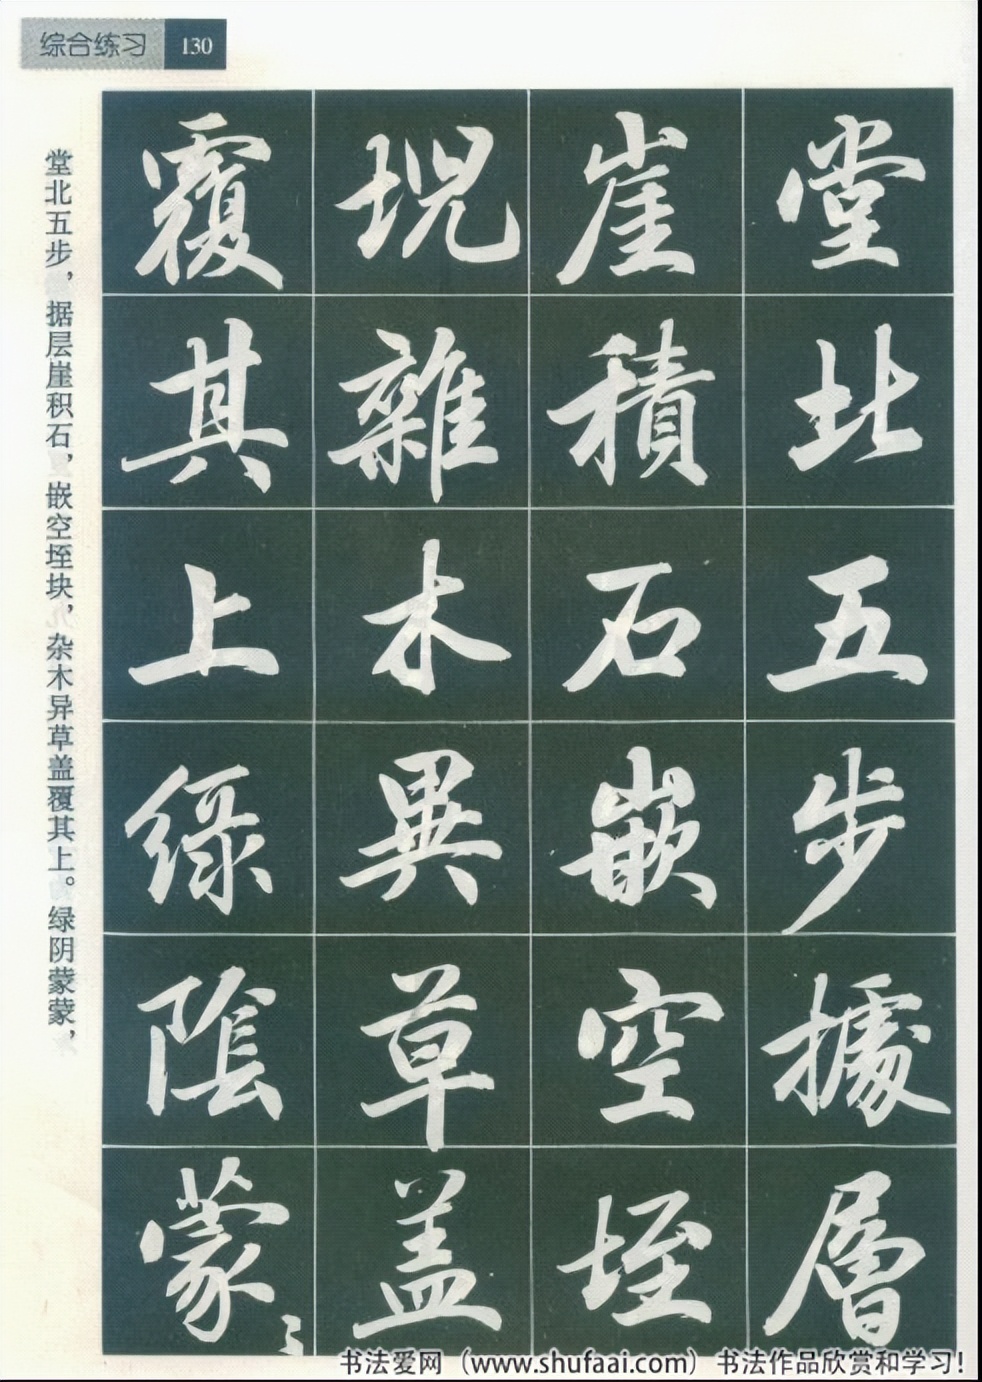 综合练习 130
堂北五步據層
崖積石嵌空垤
堄雜木異草盖
覆其上綠陰蒙〻
堂北五步，据层崖积石，嵌空垤块，杂木异草盖覆其上。绿阴蒙蒙，
书法爱网（www.shufaai.com）书法作品欣赏和学习！